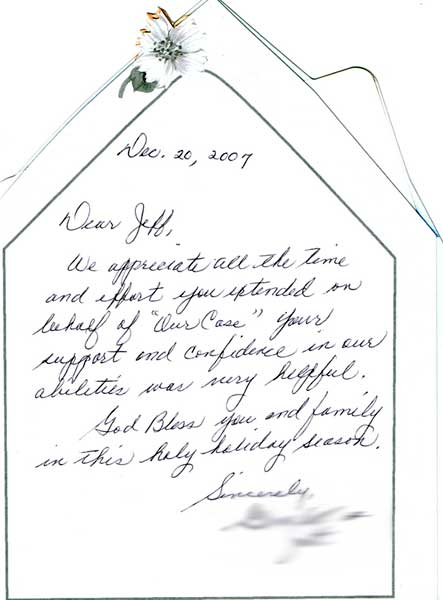 Dec. 20, 2007
Dear Jeff,
We appreciate all the time
and effort you extended on
behalf of "Our Case" your
support and confidence in our
abilities was very helpful.
God Bless you and family
in this holy holiday season.
Sincerely,